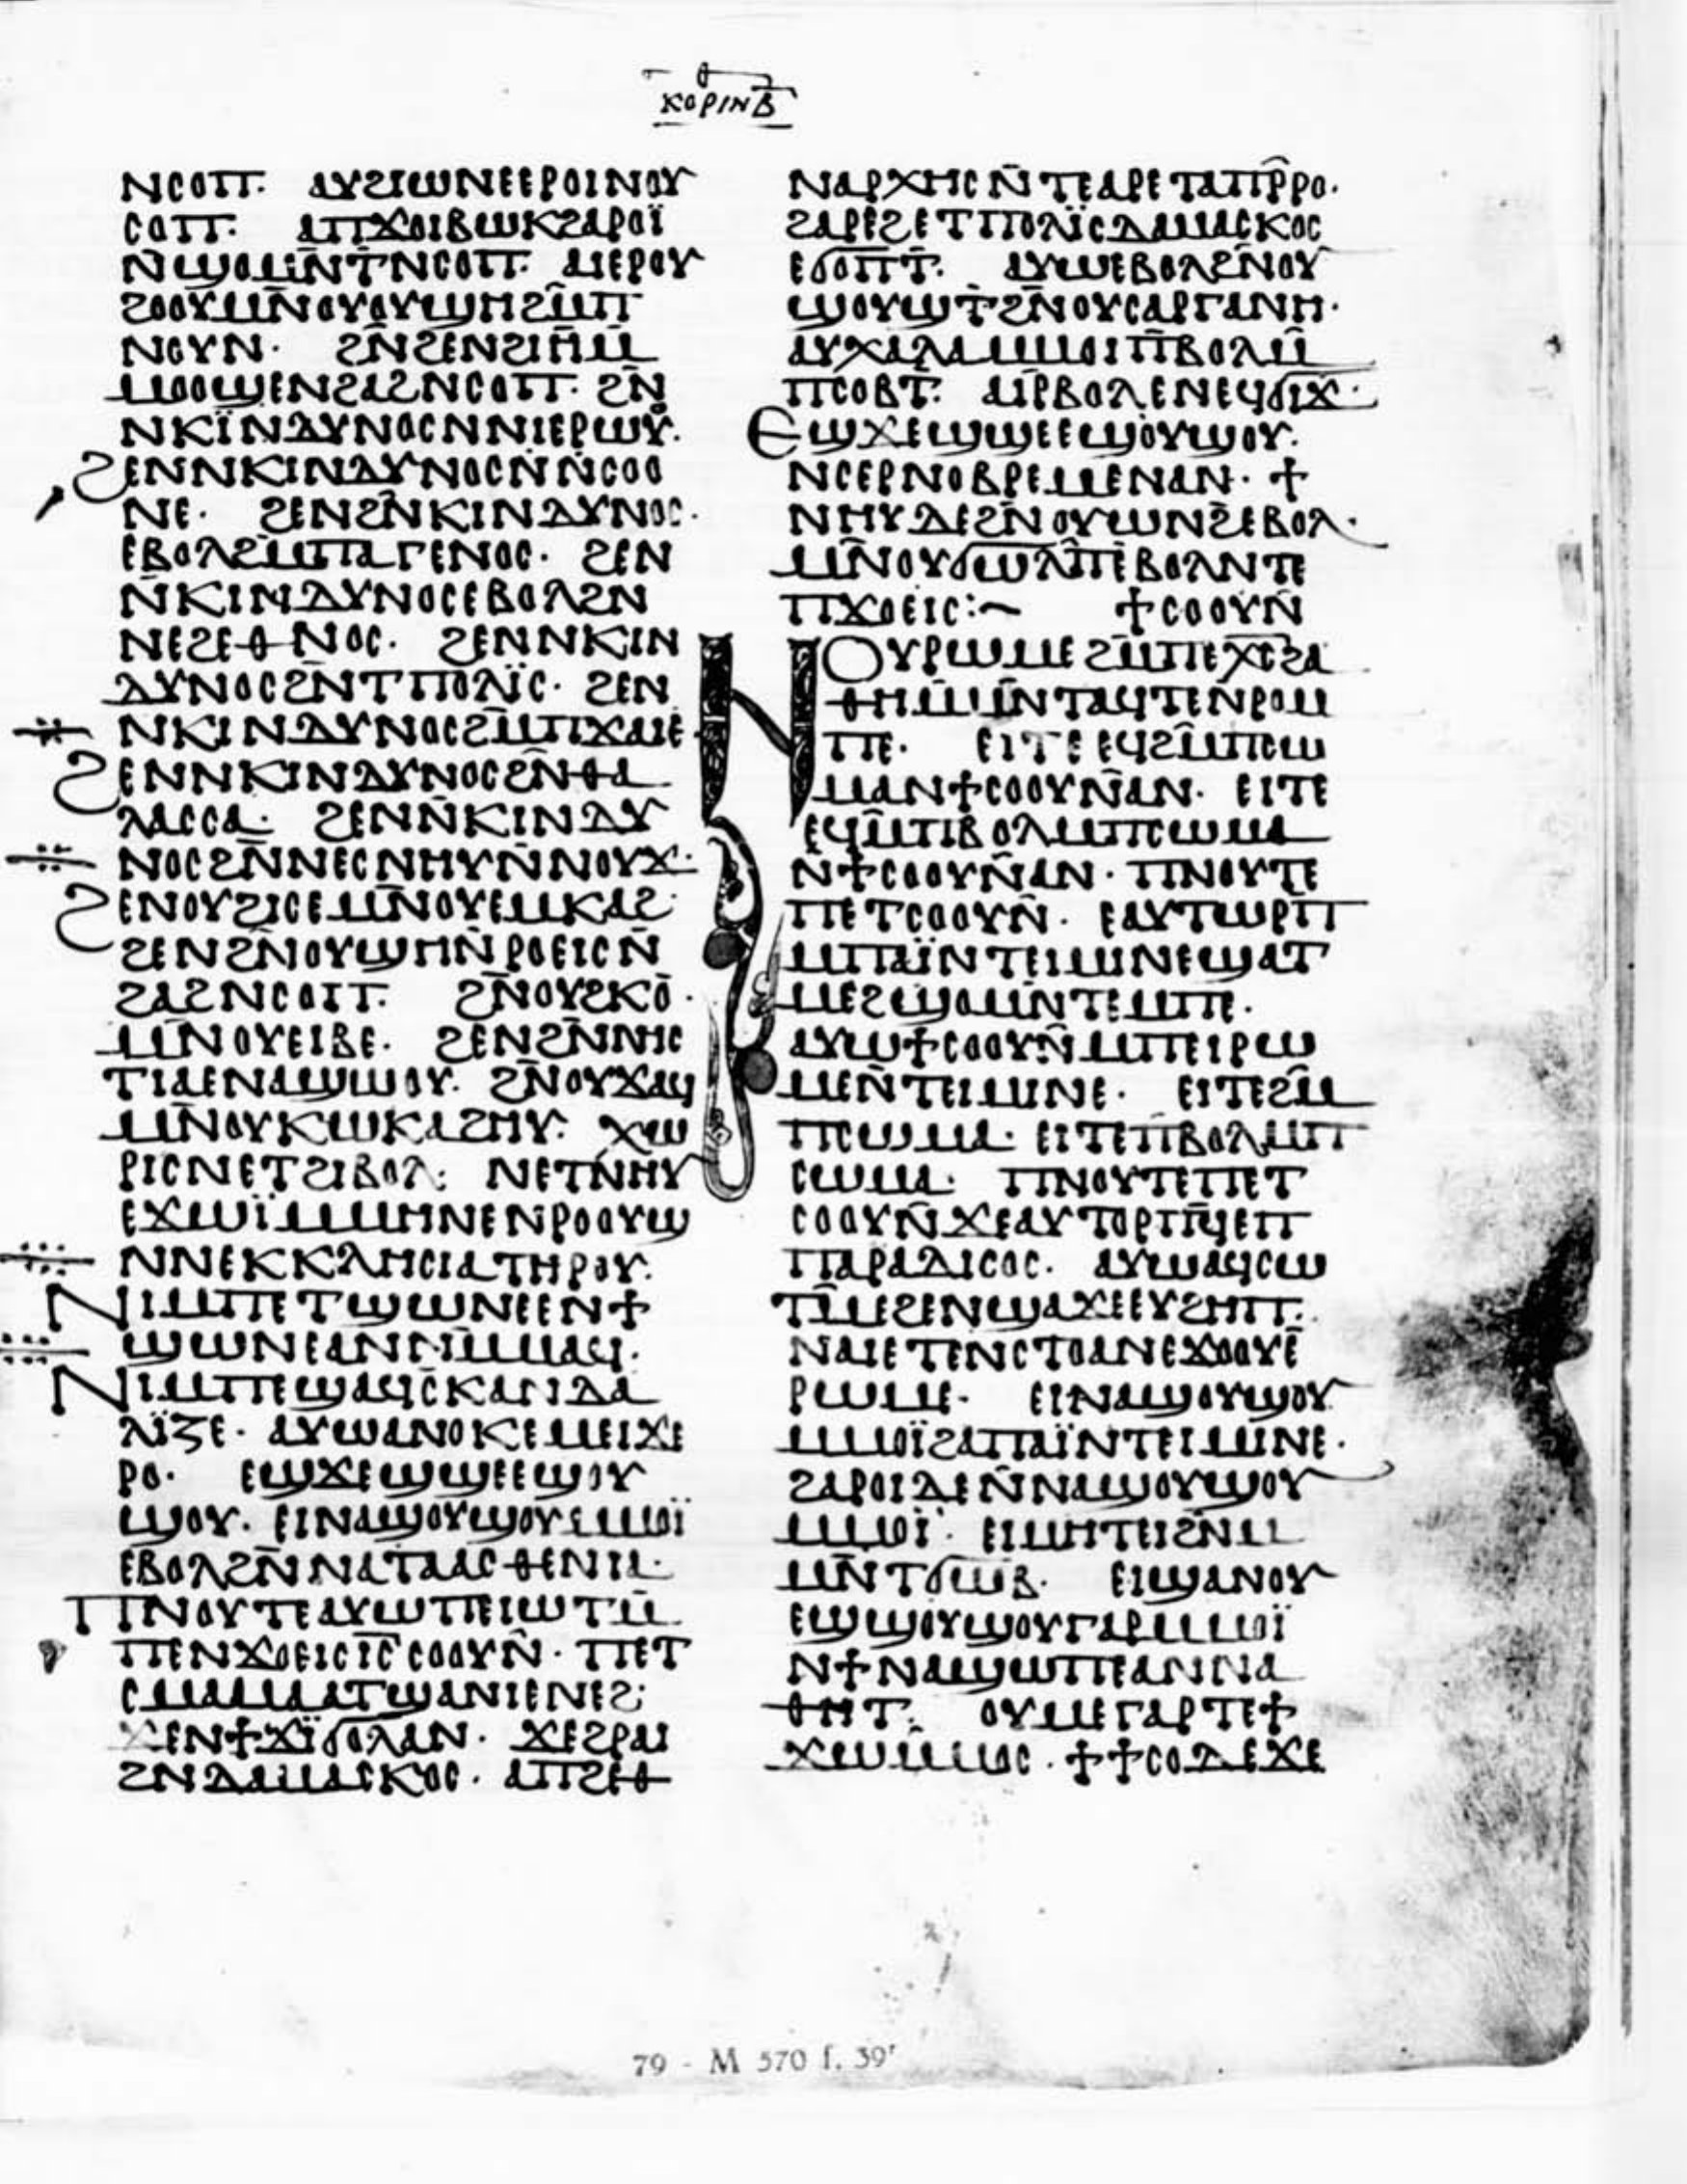 ⲕⲟⲣⲓⲛⲃ̅
ⲛⲥⲟⲡ· ⲁⲩϩⲓⲱⲛⲉⲉⲣⲟⲓⲛⲟⲩ
ⲥⲟⲡ· ⲁⲡϫⲟⲓⲃⲱⲕϩⲁⲣⲟⲓ̈
ⲛ̅ϣⲟⲙⲛ̅ⲧ̅ⲛⲥⲟⲡ· ⲁⲓⲉⲣⲟⲩ
ϩⲟⲟⲩⲙⲛ̅ⲟⲩⲟⲩϣⲏϩⲙ̅ⲡ
ⲛⲟⲩⲛ· ϩⲛ̅ϩⲉⲛϩⲓⲏⲙ̅
ⲙⲟⲟϣⲉⲛϩⲁϩⲛⲥⲟⲡ· ϩⲛ̅
ⲛⲕⲓ̈ⲛⲇⲩⲛⲟⲥⲛⲛⲓⲉⲣⲱⲟⲩ·
ϩⲉⲛⲛⲕⲓⲛⲇⲩⲛⲟⲥⲛ̅ⲛ̅ⲥⲟⲟ
ⲛⲉ· ϩⲉⲛϩⲛ̅ⲕⲓⲛⲇⲩⲛⲟⲥ·
ⲉⲃⲟⲗϩⲙ̅ⲡⲁⲅⲉⲛⲟⲥ· ϩⲉⲛ
ⲛ̅ⲕⲓⲛⲇⲩⲛⲟⲥⲉⲃⲟⲗϩⲛ
ⲛⲉϩⲉⲑⲛⲟⲥ· ϩⲉⲛⲛⲕⲓⲛ
ⲇⲩⲛⲟⲥϩⲛ̅ⲧⲡⲟⲗⲓ̈ⲥ· ϩⲉⲛ
ⲛⲕⲓⲛⲇⲩⲛⲟⲥϩⲙ̅ⲡϫⲁⲓⲉ·
ϩⲉⲛⲛⲕⲓⲛⲇⲩⲛⲟⲥϩⲛ̅ⲑⲁ
ⲗⲁⲥⲥⲁ· ϩⲉⲛⲛ̅ⲕⲓⲛⲇⲩ
ⲛⲟⲥϩⲛ̅ⲛⲉⲥⲛⲏⲩⲛ̅ⲛⲟⲩϫ·
ϩⲉⲛⲟⲩϩⲓⲥⲉⲙⲛ̅ⲟⲩⲉⲙⲕⲁϩ·
ϩⲉⲛϩⲛ̅ⲟⲩϣⲏⲛ̅ⲣⲟⲉⲓⲥⲛ̅
ϩⲁϩⲛⲥⲟⲡ· ϩⲛ̅ⲟⲩϩⲕⲟ̅·
ⲙⲛ̅ⲟⲩⲉⲓⲃⲉ· ϩⲉⲛϩⲛ̅ⲛⲏⲥ
ⲧⲓⲁⲉⲛⲁϣⲱⲟⲩ· ϩⲛ̅ⲟⲩϫⲁϥ
ⲙⲛ̅ⲟⲩⲕⲱⲕⲁϩⲏⲩ· ⲭⲱ
ⲣⲓⲥⲛⲉⲧϩⲓⲃⲟⲗ· ⲛⲉⲧⲛ̅ⲏⲩ
ⲉϫⲱⲓ̈ⲙⲙⲏⲛⲉⲛⲣⲟⲟⲩϣ
ⲛⲛⲉⲕⲕⲗⲏⲥⲓⲁⲧⲏⲣⲟⲩ·
ⲛⲓⲙⲡⲉⲧϣⲱⲛⲉⲉⲛϯ
ϣⲱⲛⲉⲁⲛⲛⲙ̅ⲙⲁϥ·
ⲛⲓⲙⲡⲉϣⲁϥⲥ̅ⲕⲁⲛⲇⲁ
ⲗⲓ̈ⲍⲉ· ⲁⲩⲱⲁⲛⲟⲕⲉⲙⲉⲓϫⲉ
ⲣⲟ· ⲉϣϫⲉϣϣⲉⲉϣⲟⲩ
ϣⲟⲩ· ⲉⲓⲛⲁϣⲟⲩϣⲟⲩⲙ̅ⲙⲟⲓ̈
ⲉⲃⲟⲗϩⲛ̅ⲛⲁⲧⲁⲁⲥⲑⲉⲛⲓⲁ·
ⲡⲛⲟⲩⲧⲉⲁⲩⲱⲡⲉⲓⲱⲧⲙ̅
ⲡⲉⲛϫⲟⲉⲓⲥⲓ̅ⲥ̅ⲥⲟⲟⲩⲛ̅· ⲡⲉⲧ
ⲥⲙⲁⲙⲁⲁⲧϣⲁⲛⲓⲉⲛⲉϩ·
ϫⲉⲛϯϫⲓ̈ϭⲟⲗⲁⲛ· ϫⲉϩⲣⲁⲓ
ϩⲛⲇⲁⲙⲁⲥⲕⲟⲥ· ⲁⲡϩⲉⲑ
ⲛⲁⲣⲭⲏⲥⲛ̅ⲧⲉⲁⲣⲉⲧⲁⲡⲣ̅ⲣⲟ·
ϩⲁⲣⲉϩⲉⲧⲡⲟⲗⲓ̈ⲥⲇⲁⲙⲁⲥⲕⲟⲥ
ⲉϭⲟⲡⲧ̅· ⲁⲩⲱⲉⲃⲟⲗϩⲛ̅ⲟⲩ
ϣⲟⲩϣⲧ̇ϩⲛ̅ⲟⲩⲥⲁⲣⲅⲁⲛⲏ·
ⲁⲩⲭⲁⲗⲁⲙⲙⲟⲓⲡ̅ⲃⲟⲗⲙ̅
ⲡⲥⲟⲃⲧ̅· ⲁⲓⲣ̅ⲃⲟⲗⲉⲛⲉϥϭⲓϫ·
ⲉϣϫⲉϣϣⲉⲉϣⲟⲩϣⲟⲩ·
ⲛⲥⲉⲣⲛⲟⲃⲣⲉⲙⲉⲛⲁⲛ· ϯ
ⲛⲏⲩⲇⲉϩⲛ̅ⲟⲩⲱⲛϩ̅ⲉⲃⲟⲗ·
ⲙⲛ̅ⲟⲩϭⲱⲗⲡ̅ⲉⲃⲟⲗⲛⲧⲉ
ⲡϫⲟⲉⲓⲥ:~ ϯⲥⲟⲟⲩⲛ̅
ⲛⲟⲩⲣⲱⲙⲉϩⲙ̅ⲡⲉⲭ̅ⲥ̅ϩⲁ
ⲑⲏⲙ̅ⲙⲛ̅ⲧⲁϥⲧⲉⲛ̅ⲣⲟⲙ
ⲡⲉ· ⲉⲓⲧⲉⲉϥϩⲙ̅ⲡⲥⲱ
ⲙⲁⲛϯⲥⲟⲟⲩⲛ̅ⲁⲛ· ⲉⲓⲧⲉ
ⲉϥⲙ̅ⲡⲃⲟⲗⲙⲡⲥⲱⲙⲁ
ⲛ̅ϯⲥⲟⲟⲩⲛ̅ⲁⲛ· ⲡⲛⲟⲩⲧⲉ
ⲡⲉⲧⲥⲟⲟⲩⲛ̅· ⲉⲁⲩⲧⲱⲣⲡ̅
ⲙⲡⲁⲓ̈ⲛⲧⲉⲓⲙⲓⲛⲉϣⲁⲧ
ⲙⲉϩϣⲟⲙⲛ̅ⲧⲉⲙⲡⲉ·
ⲁⲩⲱϯⲥⲟⲟⲩⲛ̅ⲙⲡⲉⲓⲣⲱ
ⲙⲉⲛ̅ⲧⲉⲓⲙⲓⲛⲉ· ⲉⲓⲧⲉϩⲙ̅
ⲡⲥⲱⲙⲁ· ⲉⲓⲧⲉⲡ̅ⲃⲟⲗⲙⲡ
ⲥⲱⲙⲁ· ⲡⲛⲟⲩⲧⲉⲡⲉⲧ
ⲥⲟⲟⲩⲛ̅ϫⲉⲁⲩⲧⲟⲣⲡϥ̅ⲉⲡ
ⲡⲁⲣⲁⲇⲓⲥⲟⲥ· ⲁⲩⲱⲁϥⲥⲱ
ⲧⲙ̅ⲉϩⲉⲛϣⲁϫⲉⲉⲩϩⲏⲡ·
ⲛⲁⲓⲉⲧⲉⲛⲥⲧⲟⲁⲛⲉϫⲟⲟⲩⲉ̅
ⲣⲱⲙⲉ· ⲉⲓⲛⲁϣⲟⲩϣⲟⲩ
ⲙⲙⲟⲓ̈ϩⲁⲡⲁⲓ̈ⲛⲧⲉⲓⲙⲓⲛⲉ·
ϩⲁⲣⲟⲓⲇⲉⲛ̅ⲛⲁϣⲟⲩϣⲟⲩ
ⲙⲙⲟⲓ̈· ⲉⲓⲙⲏⲧⲉⲓϩⲛ̅ⲙ
ⲙⲛ̅ⲧϭⲱⲃ· ⲉⲓϣⲁⲛⲟⲩ
ⲉϣϣⲟⲩϣⲟⲩⲅⲁⲣⲙⲙⲟⲓ̈
ⲛϯⲛⲁϣⲱⲡⲉⲁⲛⲛⲁ
ⲑⲏⲧ· ⲟⲩⲙⲉⲅⲁⲣⲧⲉϯ
ϫⲱⲙ̅ⲙⲟⲥ· ϯϯⲥⲟⲇⲉϫⲉ
79 - M 570 f. 39r